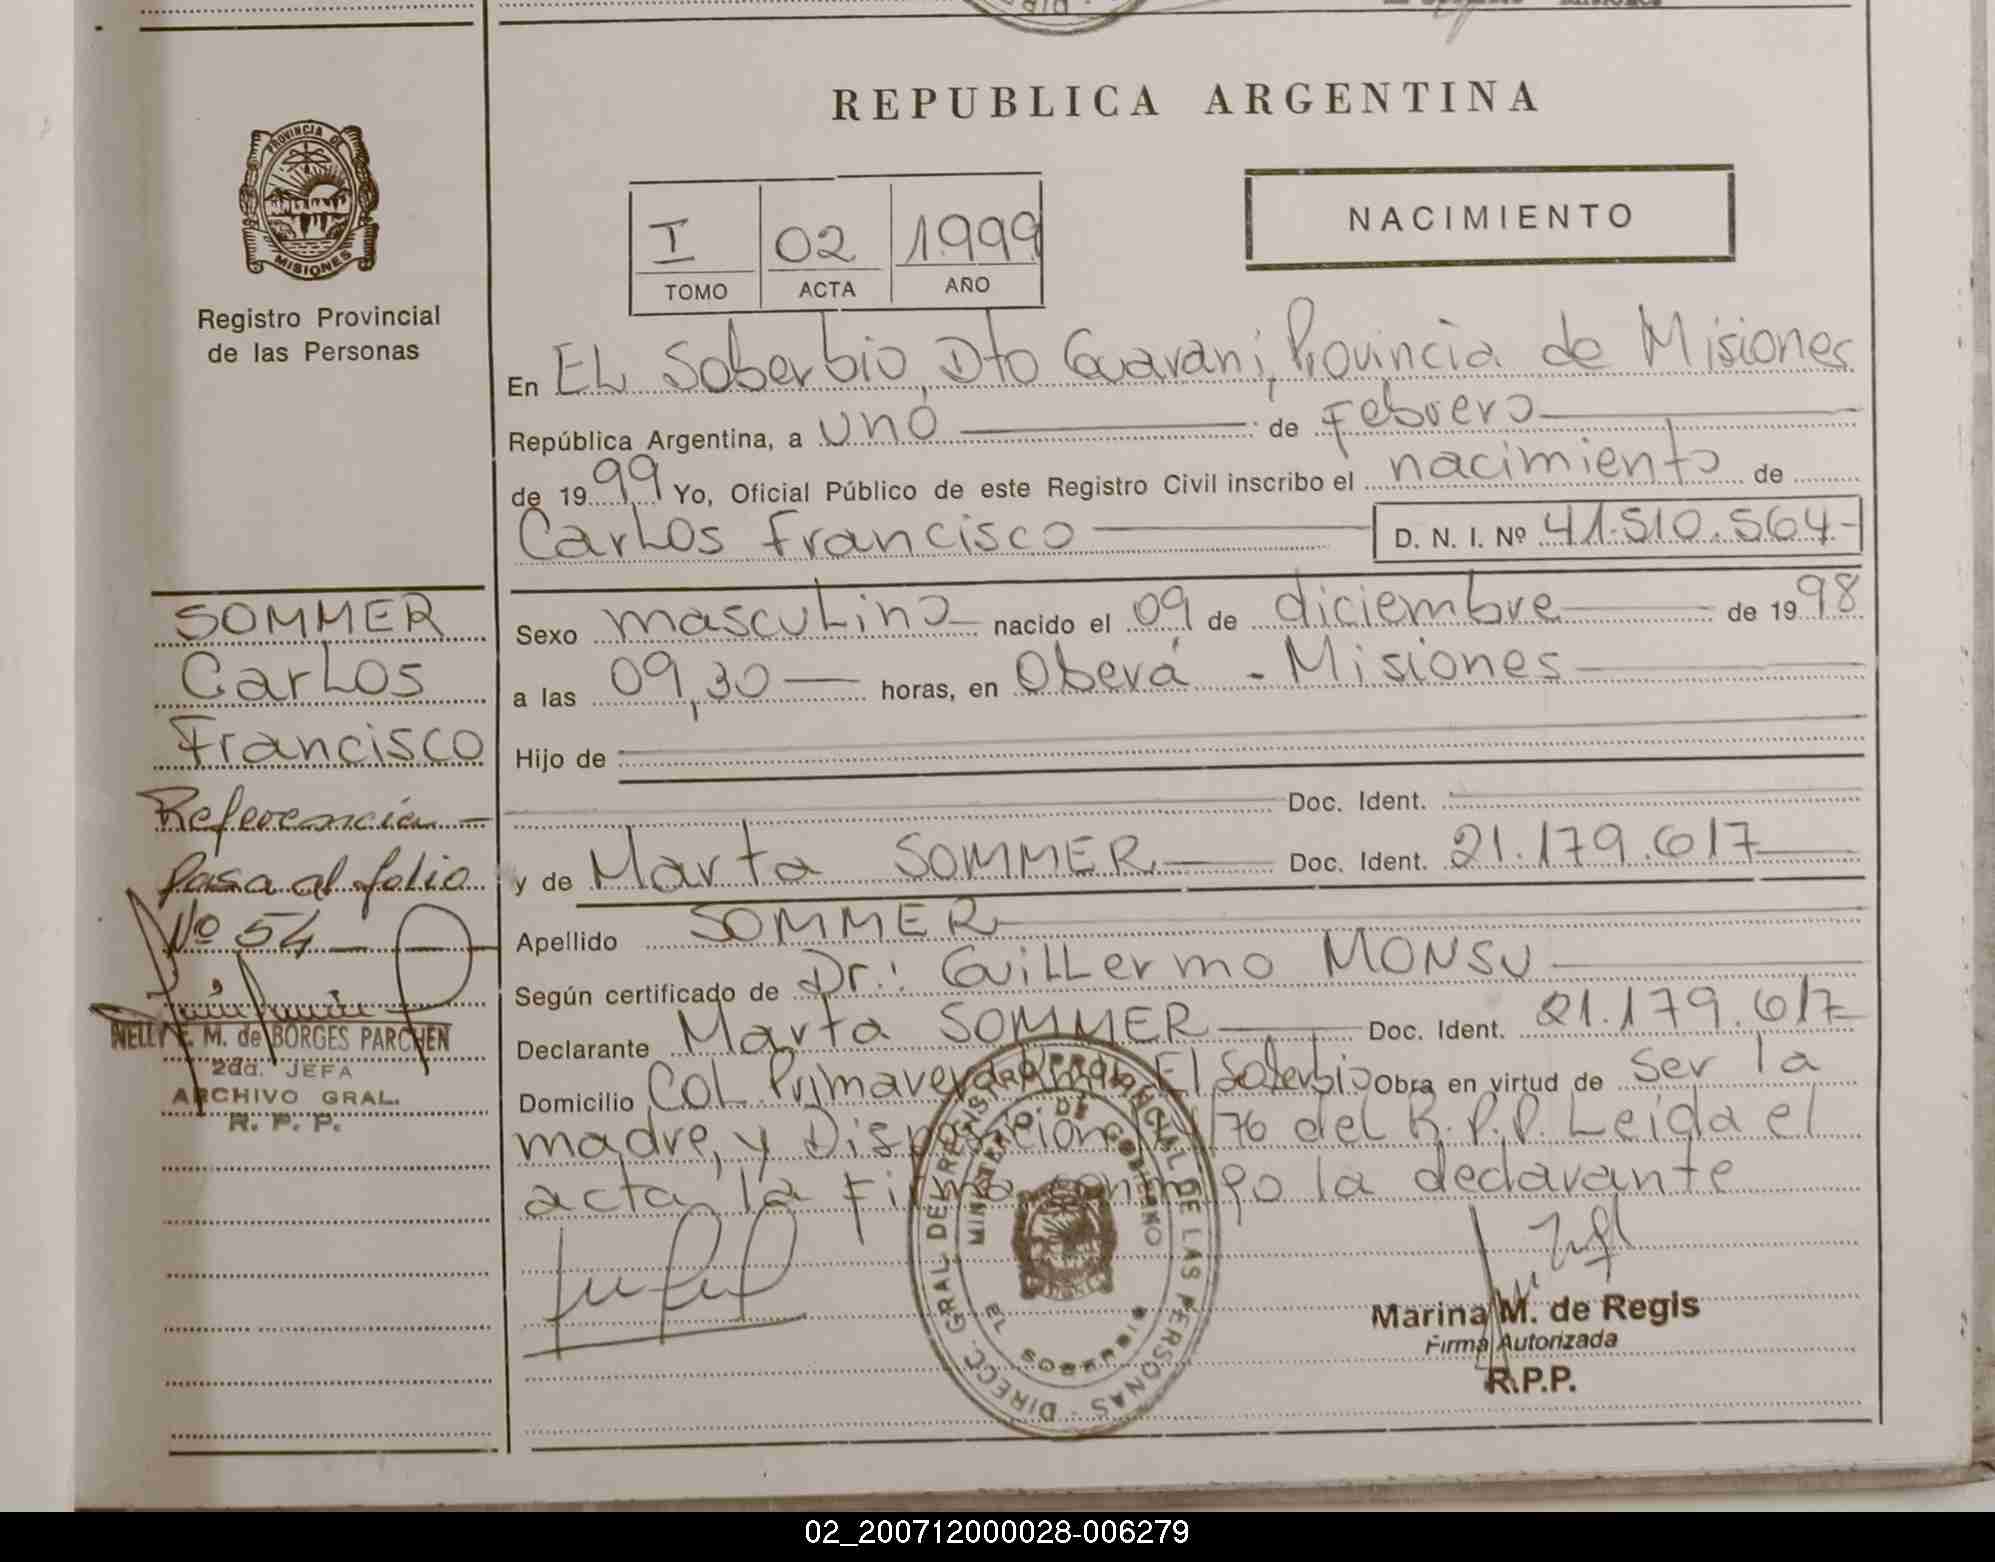 REPUBLICA ARGENTINA
PROVINCIA DE
MISIONES
Registro Provincial
de las Personas
I 02 1.999
TOMO ACTA AÑO
NACIMIENTO
En EL Soberbio, Dto Guarani, Provincia de Misiones
República Argentina, a uno de Febrero
de 1999 Yo, Oficial Público de este Registro Civil inscribo el nacimiento de
Carlos Francisco D. N. I. Nº 41.510.564-
SOMMER
Carlos
Francisco
Referencia
Pasa al folio
Nº 54
NELLY E. M. de BORGES PARCHEN
2da. JEFA
ARCHIVO GRAL.
R. P. P.
Sexo masculino nacido el 09 de diciembre de 1998
a las 09,30 horas, en Oberá - Misiones
Hijo de
Doc. Ident.
y de Marta SOMMER Doc. Ident. 21.179.617
Apellido SOMMER
Según certificado de Dr.: Guillermo MONSU
Declarante Marta SOMMER Doc. Ident. 21.179.617
Domicilio Col. Primavera El Soberbio Obra en virtud de ser la
madre, y Disposición /76 del R.P.P. Leida el
acta, la Firma conmigo la declarante
DIRECC. GRAL DEL REGISTRO PROVINCIAL DE LAS PERSONAS
MINISTERIO DE GOBIERNO
EL SOBERBIO
Marina M. de Regis
Firma Autorizada
R.P.P.
02_200712000028-006279